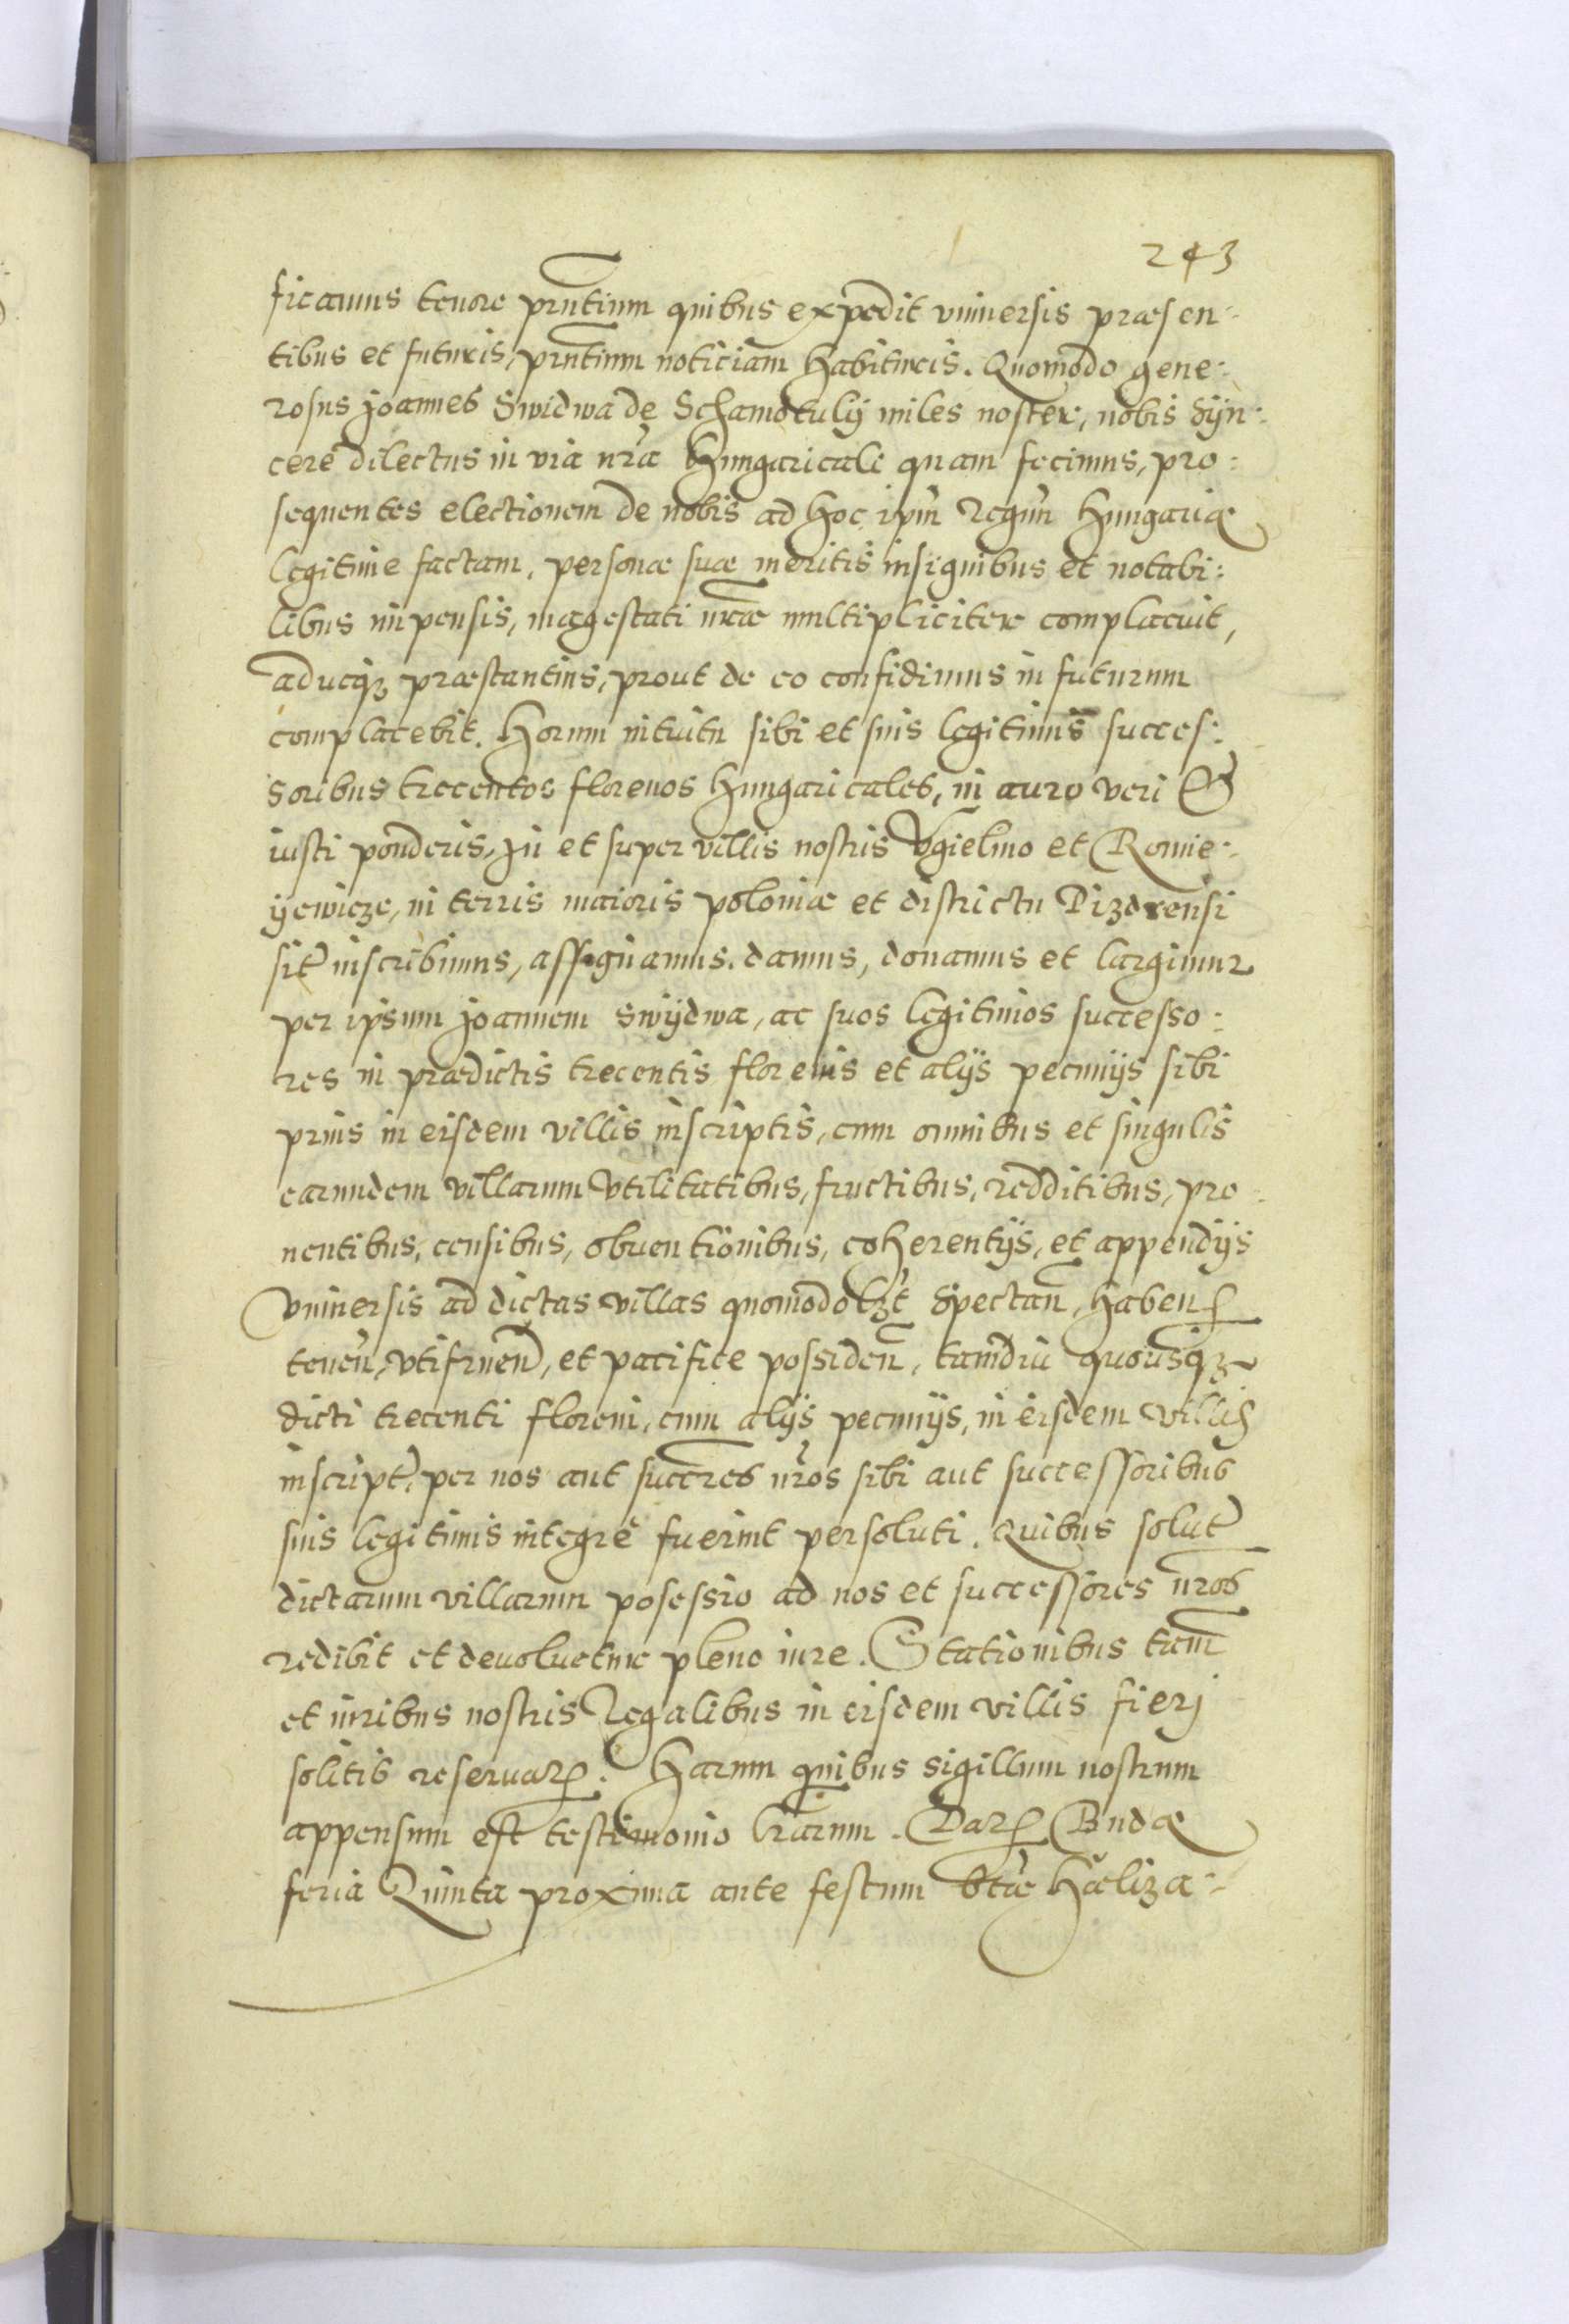 243
ficamus tenore prntium quibus expedit vniuersis præsen-
tibus et futuris, prntium noticiam habituris. Quomodo gene:
rosus joannes Swidwa de Schamotulÿ miles noster, nobis sÿn:
cerè dilectus in via nra Hungaricali quam fecimus, pro:
sequentes electionem de nobis ad hoc ipm Regnm Hungariæ
legitime factam, personæ suæ meritis insignibus et notabi:
libus impensis, magestati nræ multipliciter complacuit,
aducqz præstantius, prout de eo confidimus in futurum
complacebit. Horum intuitu sibi et suis legitimis succes:
soribus trecentos florenos Hungaricales, in auro veri &
iusti ponderis, in et super villis nostris Vgielmo et Romie:
ÿewicze, in terris maioris poloniæ et districtu Pizdrensi
sit inscribimus, assignamus. damus, donamus et largimur
per ipsum joannem Swÿdwa, ac suos legitimos successo:
res in prædictis trecentis florenis et alÿs pecunÿs sibi
prius in eisdem villis inscriptis, cum omnibus et singulis
earundem villarum vtilitatibus, fructibus, redditibus, pro:
uentibus, censibus, obuentionibus, coherentÿs, et appendÿs
vniuersis ad dictas villas quomodolzt spectan, haben
tenen, vtifruend, et pacifice possiden, tamdiu quousqz
dicti trecenti floreni, cum alÿs pecunÿs, in eisdem villis
inscript, per nos aut succres nros sibi aut successoribus
suis legitimis integrè fuerint persoluti. Quibus solut
dictarum villarum posessio ad nos et successores nros
redibit et deuoluetur pleno iure. Stationibus tam
et iuribus nostris Regalibus in eisdem villis fierj
solitis reseruat. Harum quibus sigillum nostrum
appensum est testimonio lrarum. Dat Budæ
feria Quinta proxima ante festum btæ Hæliza: